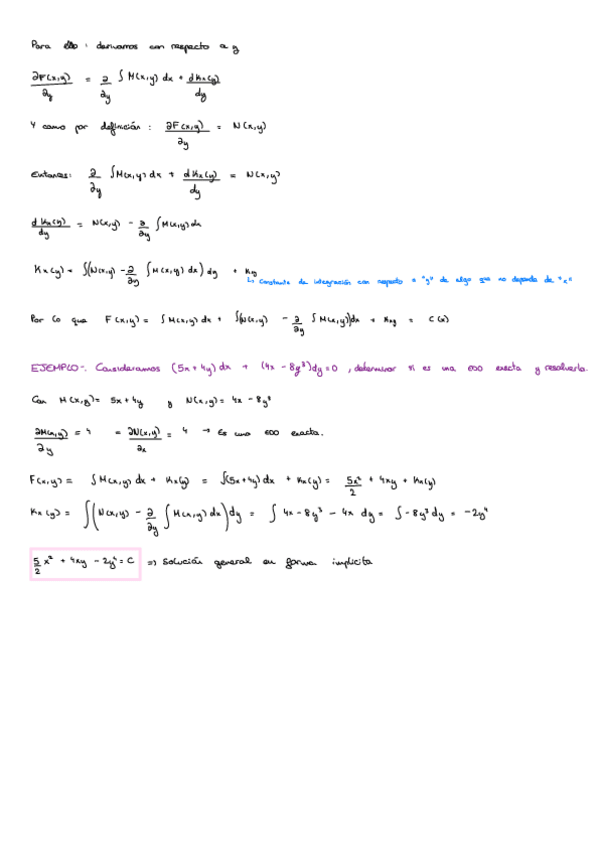 Para ello : derivamos con respecto a y
∂F(x,y)/∂y = ∂/∂y ∫ M(x,y) dx + dKx(y)/dy
Y como por definición : ∂F(x,y)/∂y = N(x,y)
Entonces: ∂/∂y ∫M(x,y) dx + dKx(y)/dy = N(x,y)
dKx(y)/dy = N(x,y) - ∂/∂y ∫M(x,y)dx
Kx(y) = ∫(N(x,y) - ∂/∂y ∫M(x,y) dx) dy + Kxy
↳ Constante de integración con respecto a "y" de algo que no depende de "x"
Por lo que F(x,y) = ∫M(x,y) dx + ∫(N(x,y) - ∂/∂y ∫M(x,y))dx dy + Kxy = C(x)
EJEMPLO-. Consideramos (5x + 4y) dx + (4x - 8y³)dy = 0 , determinar si es una EDO exacta y resolverla.
Con M(x,y) = 5x + 4y y N(x,y) = 4x - 8y³
∂M(x,y)/∂y = 4 = ∂N(x,y)/∂x = 4 → Es una EDO exacta.
F(x,y) = ∫M(x,y) dx + Kx(y) = ∫(5x+4y) dx + Kx(y) = 5x²/2 + 4xy + Kx(y)
Kx(y) = ∫(N(x,y) - ∂/∂y ∫M(x,y) dx)dy = ∫ 4x - 8y³ - 4x dy = ∫ -8y³ dy = -2y⁴
5/2 x² + 4xy - 2y⁴ = C ⇒ Solución general en forma implícita